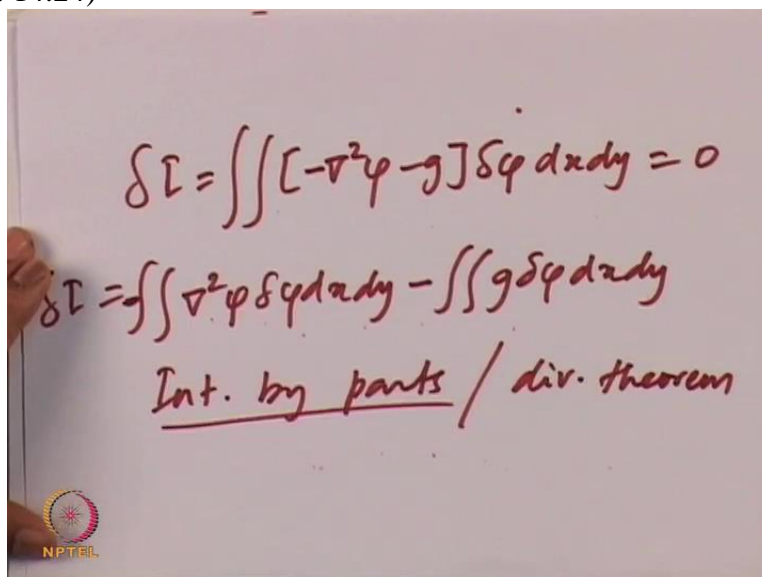 δI = ∬ [-∇²φ - g] δφ dx dy = 0
δI = -∬ ∇²φ δφ dx dy - ∬ g δφ dx dy
Int. by parts / div. theorem
NPTEL